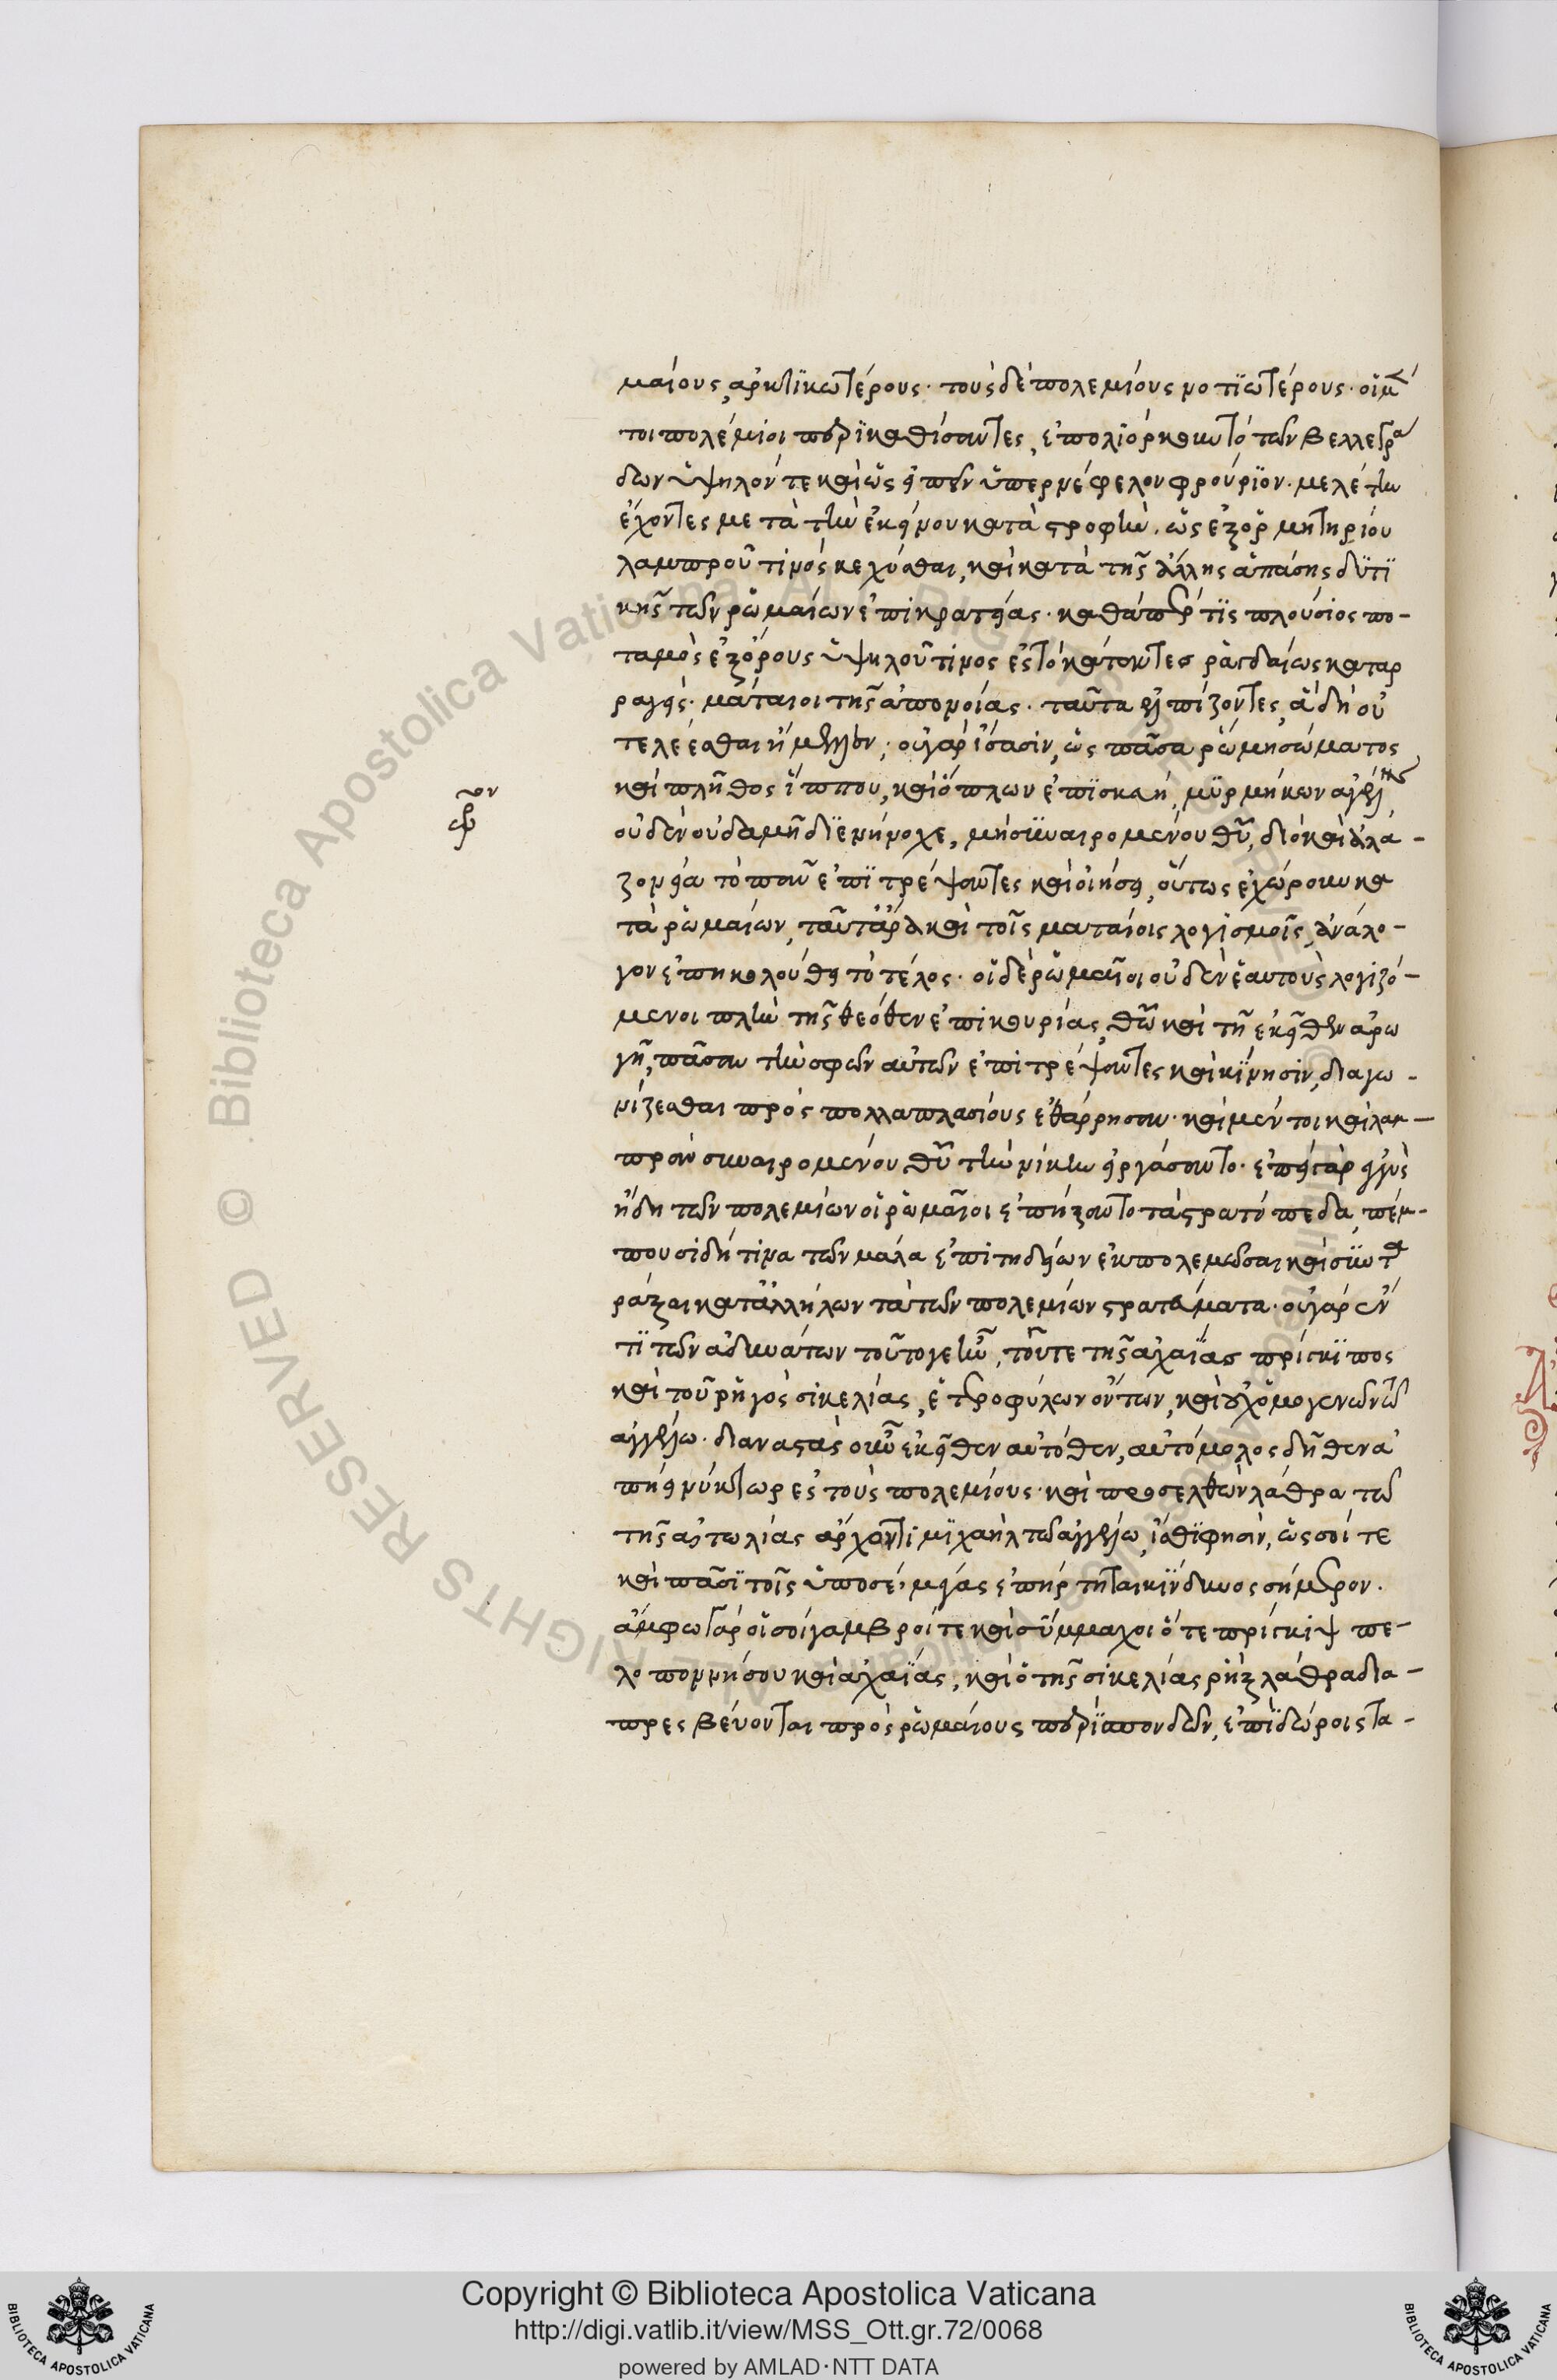 μαίους, ἀρκτικωτέρους· τοὺς δὲ πολεμίους νοτιωτέρους· οἱ μέν
τοι πολέμιοι περικαθίσαντες, ἐπολιόρκουν τὸ τῶν Βελλεγρά
δων ὑψηλόν τε καὶ ὡς εἰπεῖν ὑπερνέφελον φρούριον· μελέτην
ἔχοντες μετὰ τὴν ἐκείνου καταστροφὴν, ὡς ἐξ ὁρμητηρίου
λαμπροῦ τινὸς κεχύσθαι, καὶ κατὰ τῆς ἄλλης ἁπάσης δυτι
κῆς τῶν ῥωμαίων ἐπικρατείας· καθάπερ τις πλούσιος πο-
ταμὸς ἐξ ὄρους ὑψηλοῦ τινος ἐς τὸ κάταντες ῥαγδαίως καταρ
ραγείς· μάταιοι τῆς ἀπονοίας· ταῦτα ἐλπίζοντες, ἃ δὴ οὐ
τελέεσθαι ἤμελλεν· οὐ γὰρ ἴσασιν, ὡς πᾶσα ῥώμη σώματος
καὶ πλῆθος ἵππου, καὶ ὅπλων ἐπισκευή, μυρμήκων ἀγέλης
οὐδὲν οὐδαμῆ διενήνοχε, μὴ συναιρομένου θεοῦ, διὸ καὶ ἀλα-
ζονείᾳ τὸ πᾶν ἐπιτρέψαντες καὶ οἰήσει, οὕτως ἐχώρουν κα
τὰ ῥωμαίων, ταῦτ' ἄρα καὶ τοῖς ματαίοις λογισμοῖς, ἀνάλο-
γον ἐπηκολούθει τὸ τέλος· οἱ δὲ ῥωμαῖοι οὐδὲν ἑαυτοὺς λογιζό-
μενοι πλὴν τῆς θεόθεν ἐπικουρίας, θεῶ καὶ τῆ ἐκεῖθεν ἀρω
γῆ, πᾶσαν τὴν σφῶν αὐτῶν ἐπιτρέψαντες καὶ κίνησιν, διαγω-
νίζεσθαι πρὸς πολλαπλασίους ἐθάρρησαν· καὶ μέντοι καὶ λαμ-
πρὰν συναιρομένου θεοῦ τὴν νίκην εἰργάσαντο· ἐπεὶ γὰρ ἐγγὺς
ἤδη τῶν πολεμίων οἱ ῥωμαῖοι ἐπήξαντο τὰ στρατόπεδα, πέμ-
πουσι δή τινα τῶν μάλα ἐπιτηδείων ἐκπολεμῶσαι καὶ συντα
ράξαι κατ' ἀλλήλων τὰ τῶν πολεμίων στρατεύματα· οὐ γὰρ ἦν
τι τῶν ἀδυνάτων τοῦτο γε ἦν, τοῦ τε τῆς ἀχαΐας πρίγκιπος
καὶ τοῦ ῥηγὸς σικελίας, ἑτεροφύλων ὄντων, καὶ οὐχ ὁμογενῶν τῶ
ἀγγέλω· διαναστὰς οὖν ἐκεῖθεν αὐτόθεν, αὐτόμολος δῆθεν ἀ
πήει νύκτωρ ἐς τοὺς πολεμίους· καὶ προσελθὼν λάθρα τῶ
τῆς αἰτωλίας ἄρχοντι μιχαὴλ τῶ ἀγγέλω, ἴσθι φησὶν, ὡς σοί τε
καὶ πᾶσι τοῖς ὑπὸ σέ, μέγας ἐπήρτηται κίνδυνος σήμερον·
ἄμφω γὰρ οἱ σοὶ γαμβροί τε καὶ σύμμαχοι ὅ τε πρίγκιψ πε-
λοποννήσου καὶ ἀχαΐας, καὶ ὁ τῆς σικελίας ῥὴξ λάθρα δια-
πρεσβεύονται πρὸς ῥωμαίους περὶ σπονδῶν, ἐπὶ δώροις τα-